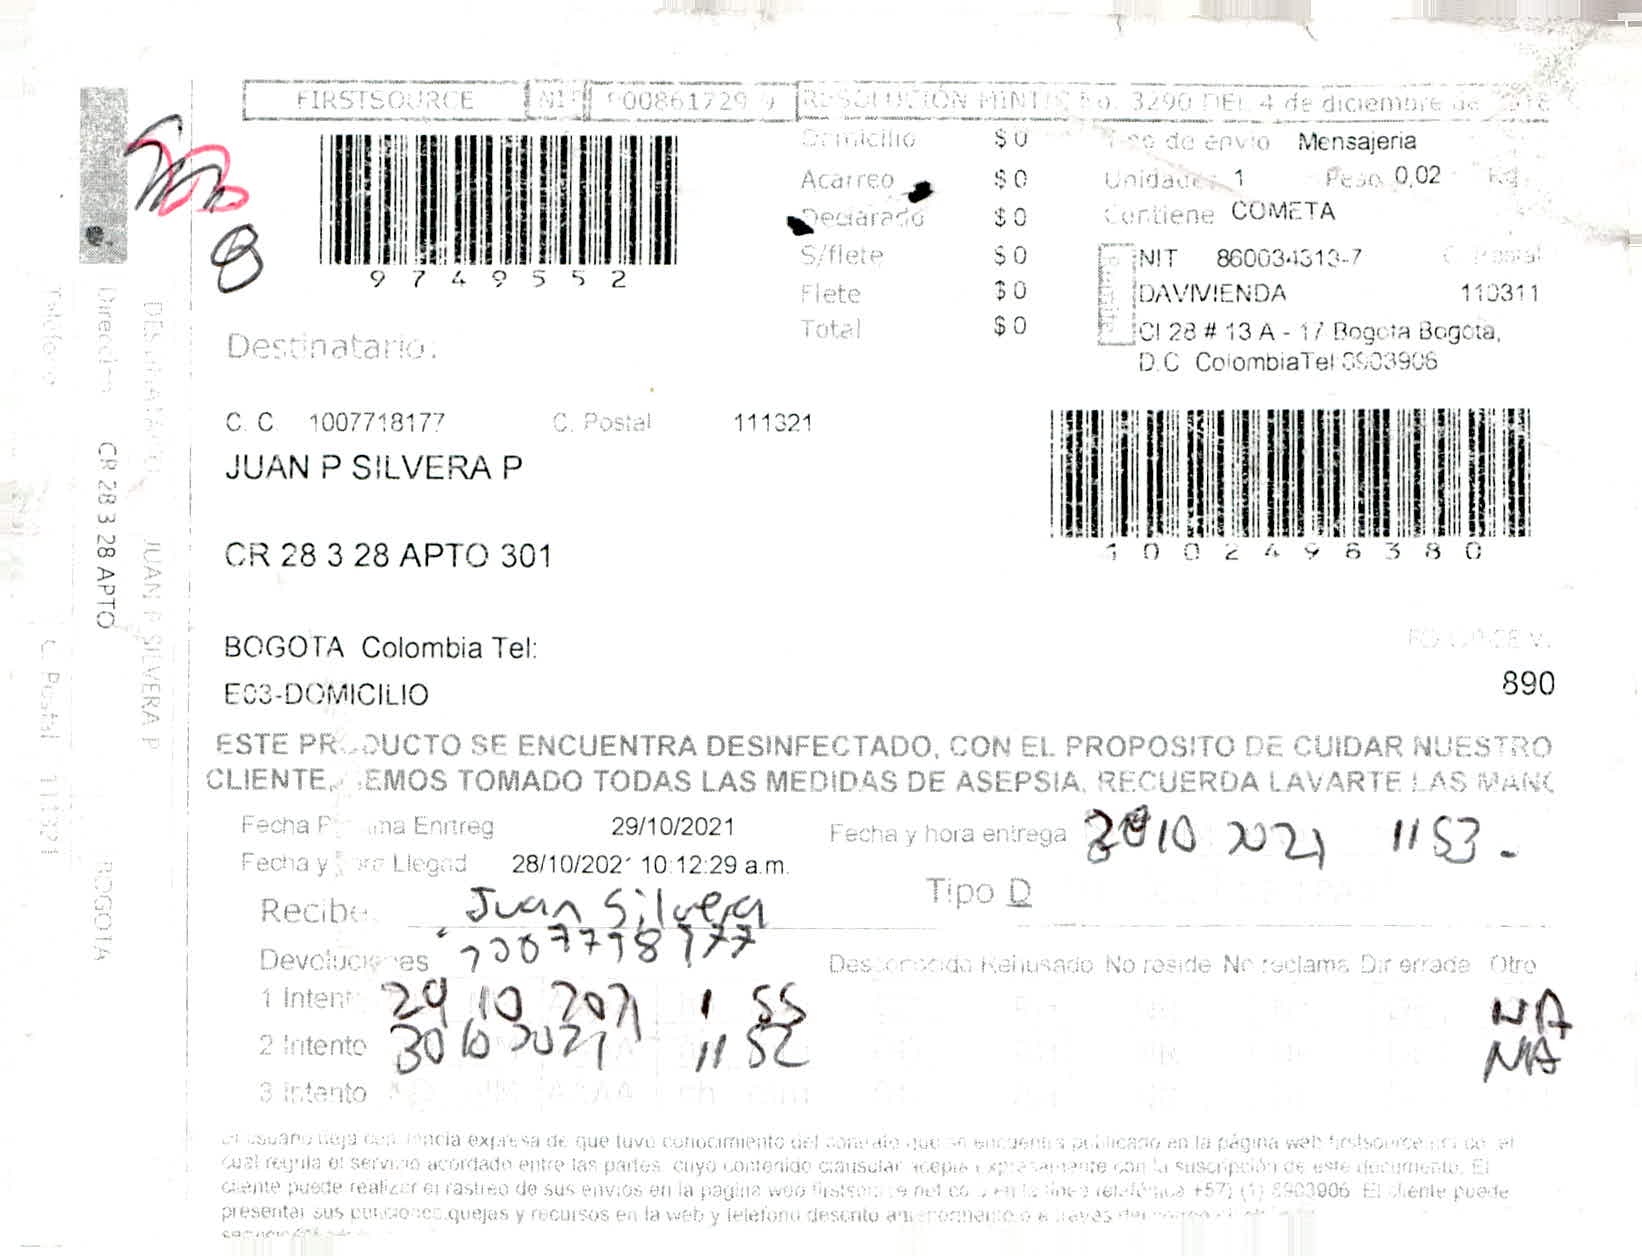 FIRSTSOURCE NIT 900861729 9 RESOLUCIÓN MINTIC No. 3290 DEL 4 de diciembre de
9749552
8
Domicilio $ 0
Acarreo $ 0
Declarado $ 0
S/flete $ 0
Flete $ 0
Total $ 0
Tipo de envio Mensajeria
Unidades 1 Peso 0,02 Kg
Contiene COMETA
Remite
NIT 860034313-7 C. Postal
DAVIVIENDA 110311
Cl 28 # 13 A - 17 Bogota Bogota,
D.C Colombia Tel 8903906
Destinatario:
C. C 1007718177 C. Postal 111321
JUAN P SILVERA P
CR 28 3 28 APTO 301
BOGOTA Colombia Tel:
E03-DOMICILIO
1002496380
890
ESTE PRODUCTO SE ENCUENTRA DESINFECTADO, CON EL PROPOSITO DE CUIDAR NUESTRO
CLIENTE, HEMOS TOMADO TODAS LAS MEDIDAS DE ASEPSIA. RECUERDA LAVARTE LAS MANO
Fecha Proxima Enrtreg 29/10/2021
Fecha y hora entrega 30 10 2021 11 53 -
Fecha y Hora Llegad 28/10/2021 10:12:29 a.m.
Tipo D
Recibe: Juan Silvera
1007718177
Devoluciones Desconocido Rehusado No reside No reclama Dir errada Otro
1 Intento 29 10 2021 1 55 NA
2 Intento 30 10 2021 11 52 NA
3 Intento
El usuario deja constancia expresa de que tuvo conocimiento del contrato que se encuentra publicado en la página web firstsource.net.co, el
cual regula el servicio acordado entre las partes, cuyo contenido clausular acepta expresamente con la suscripción de este documento. El
cliente puede realizar el rastreo de sus envios en la pagina web firstsource.net.co o en la linea telefónica +57) (1) 8903906. El cliente puede
presentar sus peticiones, quejas y recursos en la web y telefono descrito anteriormente o a través del correo
DESTINATARIO JUAN P SILVERA P
Dirección CR 28 3 28 APTO BOGOTA
Teléfono C. Postal 111321